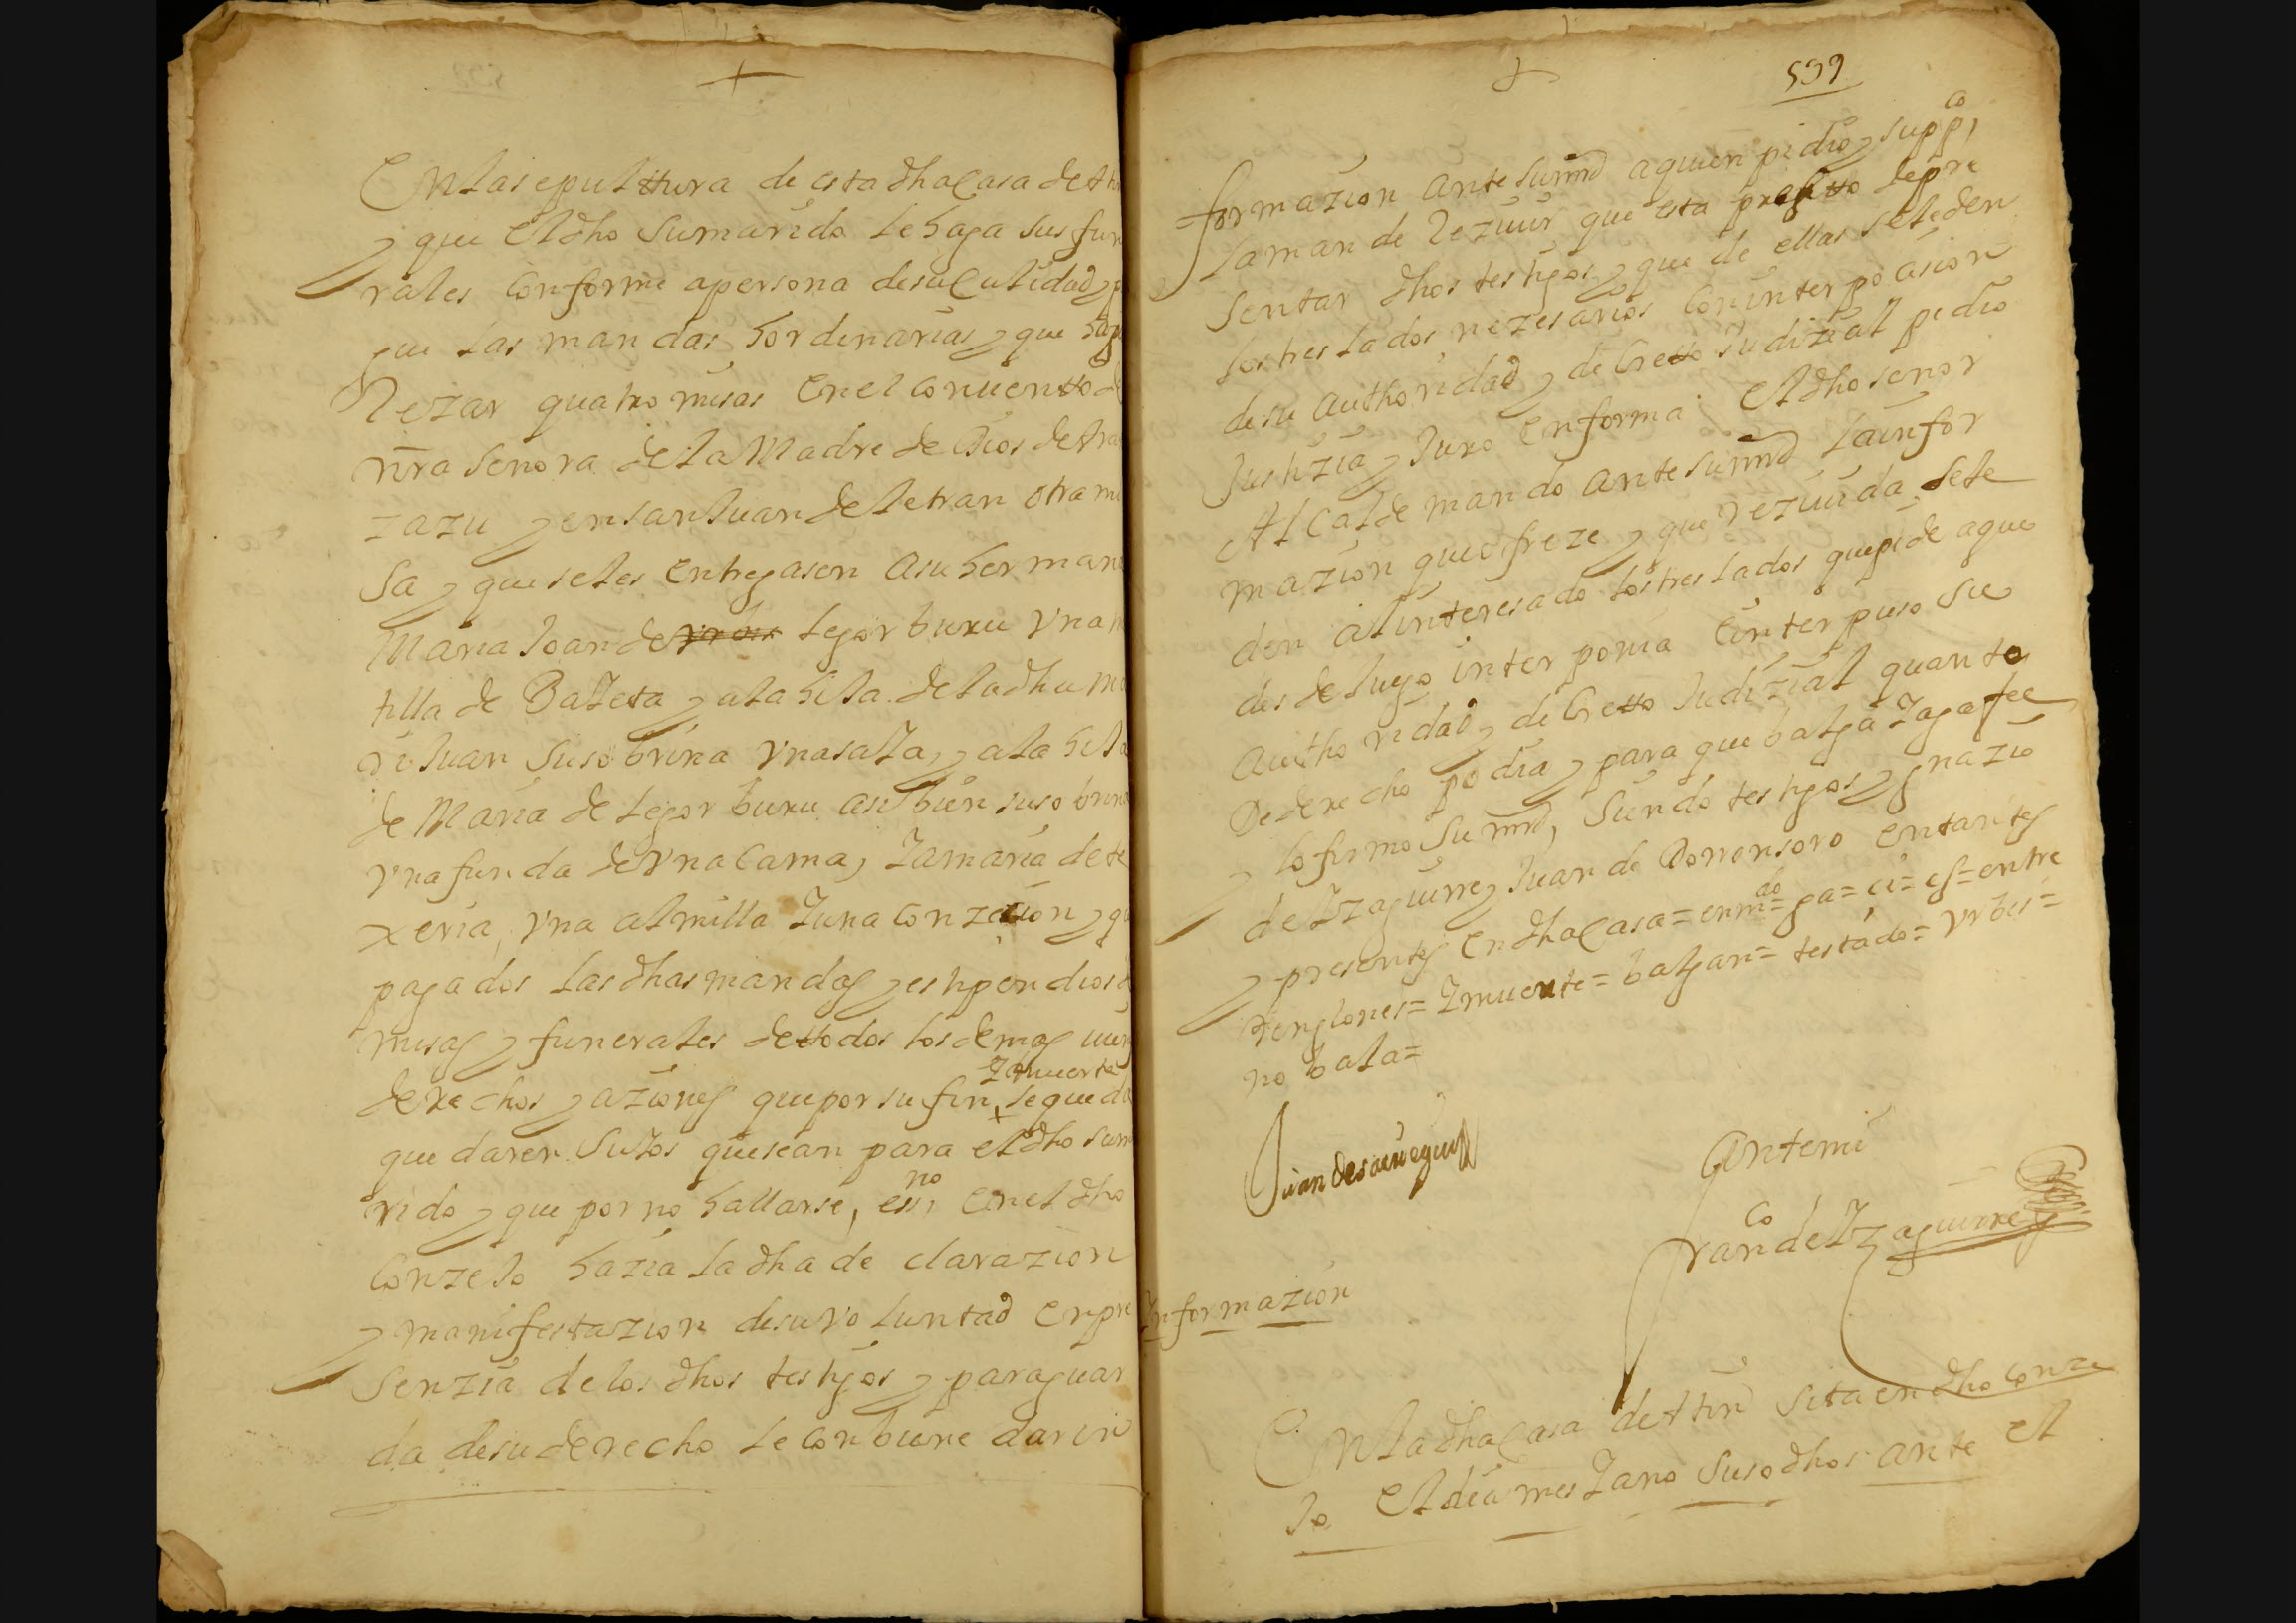 +
En la sepultura de esta dha Casa de
y que El dho su marido le haga sus fun
rales conforme a persona de su Calidad y
que las mandas hordinarias y que haga
Rezar quatro misas En el conuento de
nra señora de la Madre de Dios de Aran
zazu y en san Juan de letran otra mi
sa y que se les Entregasen a su herman
Maria Joan de vrbis legorburu vna
tilla de Baieta y a la hija de la dha m
Juan su sobrina vna saia, y a la hija
de Maria de legorburu asi bien su sobrina
vna funda de vna Cama, y a maria de te
xeria, vna almilla y una conzecion y q
pagados las dhas mandas y estipendios
misas y funerales de todos los demas uien
y muerte
derechos y aziones que por su fin, se queda
quedaren suios que sean para el dho su ma
rido y que por no hallarse, essno En el dho
Conzejo hazia la dha declarazion
y manifestazion de su voluntad En pre
senzia de los dhos testigos y para guar
da de su derecho le conbiene dar in
+
539
formazion ante su md a quien pidio y suppco
la mande rezuir que esta presto de pre
sentar dhos testigos y que de ellas se le den
los treslados nezesarios con interposicion
de su authoridad y decretto judizial pidio
Justizia y Juro En forma El dho senor
Alcalde mando ante su md la infor
mazion que ofreze y que rezuuida se le
den al interesado los treslados que pide a que
desde luego interponia E interpuso su
authoridad y decretto Judizial quanto
De derecho podia y para que balga y aga fee
y lo firmo su md, siendo testigos ygnazio
de Yzaguirre y Juan de Dorronsoro Entantes
y presentes En dha Casa = enmdo = ga = ci = es = entre
renglones = y muerte = balgan = testado = vrbis =
no bala =
Juan de sarriegui
Ante mi
Franco de Yzaguirre
Informazion
En la dha Casa de sita en dho conze
jo El dia mes y ano susodhos ante el